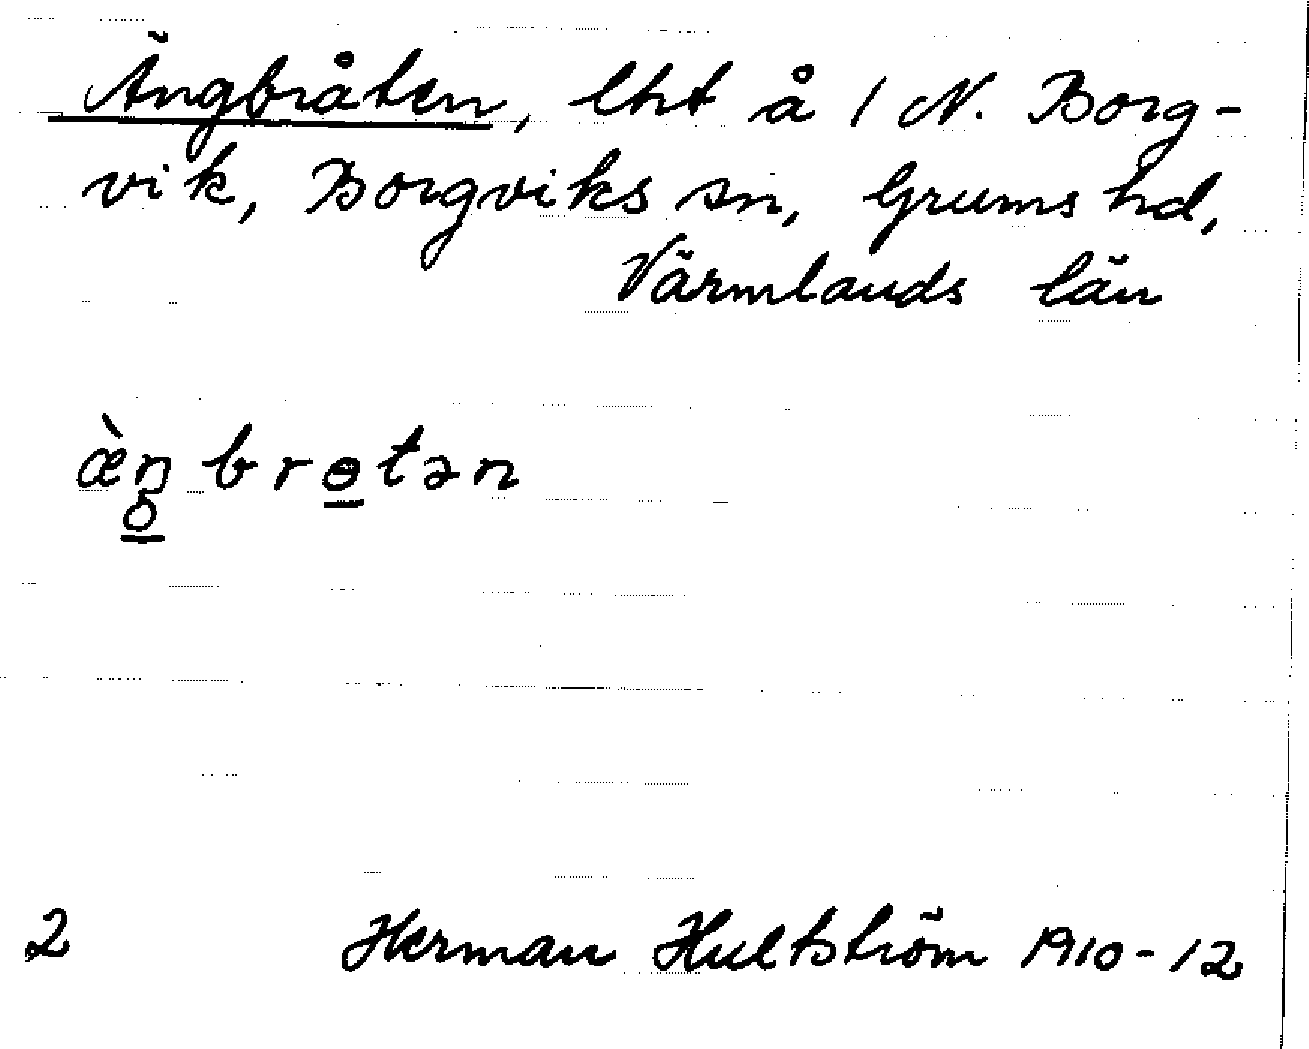 Ängbråten, lht å 1 N. Borg-
vik, Borgviks sn, Grums hd,
Värmlands län
æ̀ŋbrɵ̲tən
o̲
2 Herman Hultström 1910-12